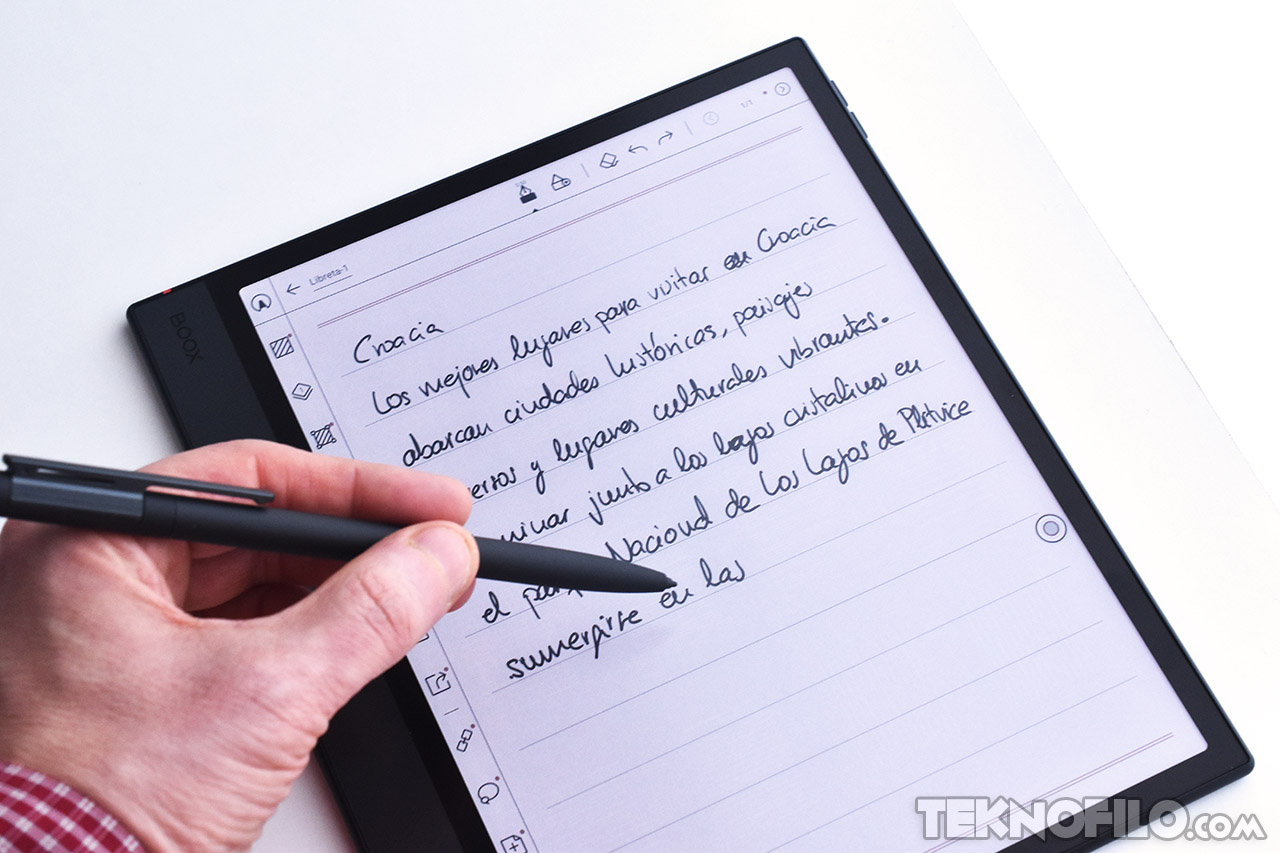 BOOX
Libreta-1
1/1
Croacia
Los mejores lugares para visitar en Croacia
abarcan ciudades históricas, paisajes
y lugares culturales vibrantes.
junto a los lagos cristalinos en
el Nacional de los Lagos de Plitvice
sumergirse en las
TEKNOFILO.COM